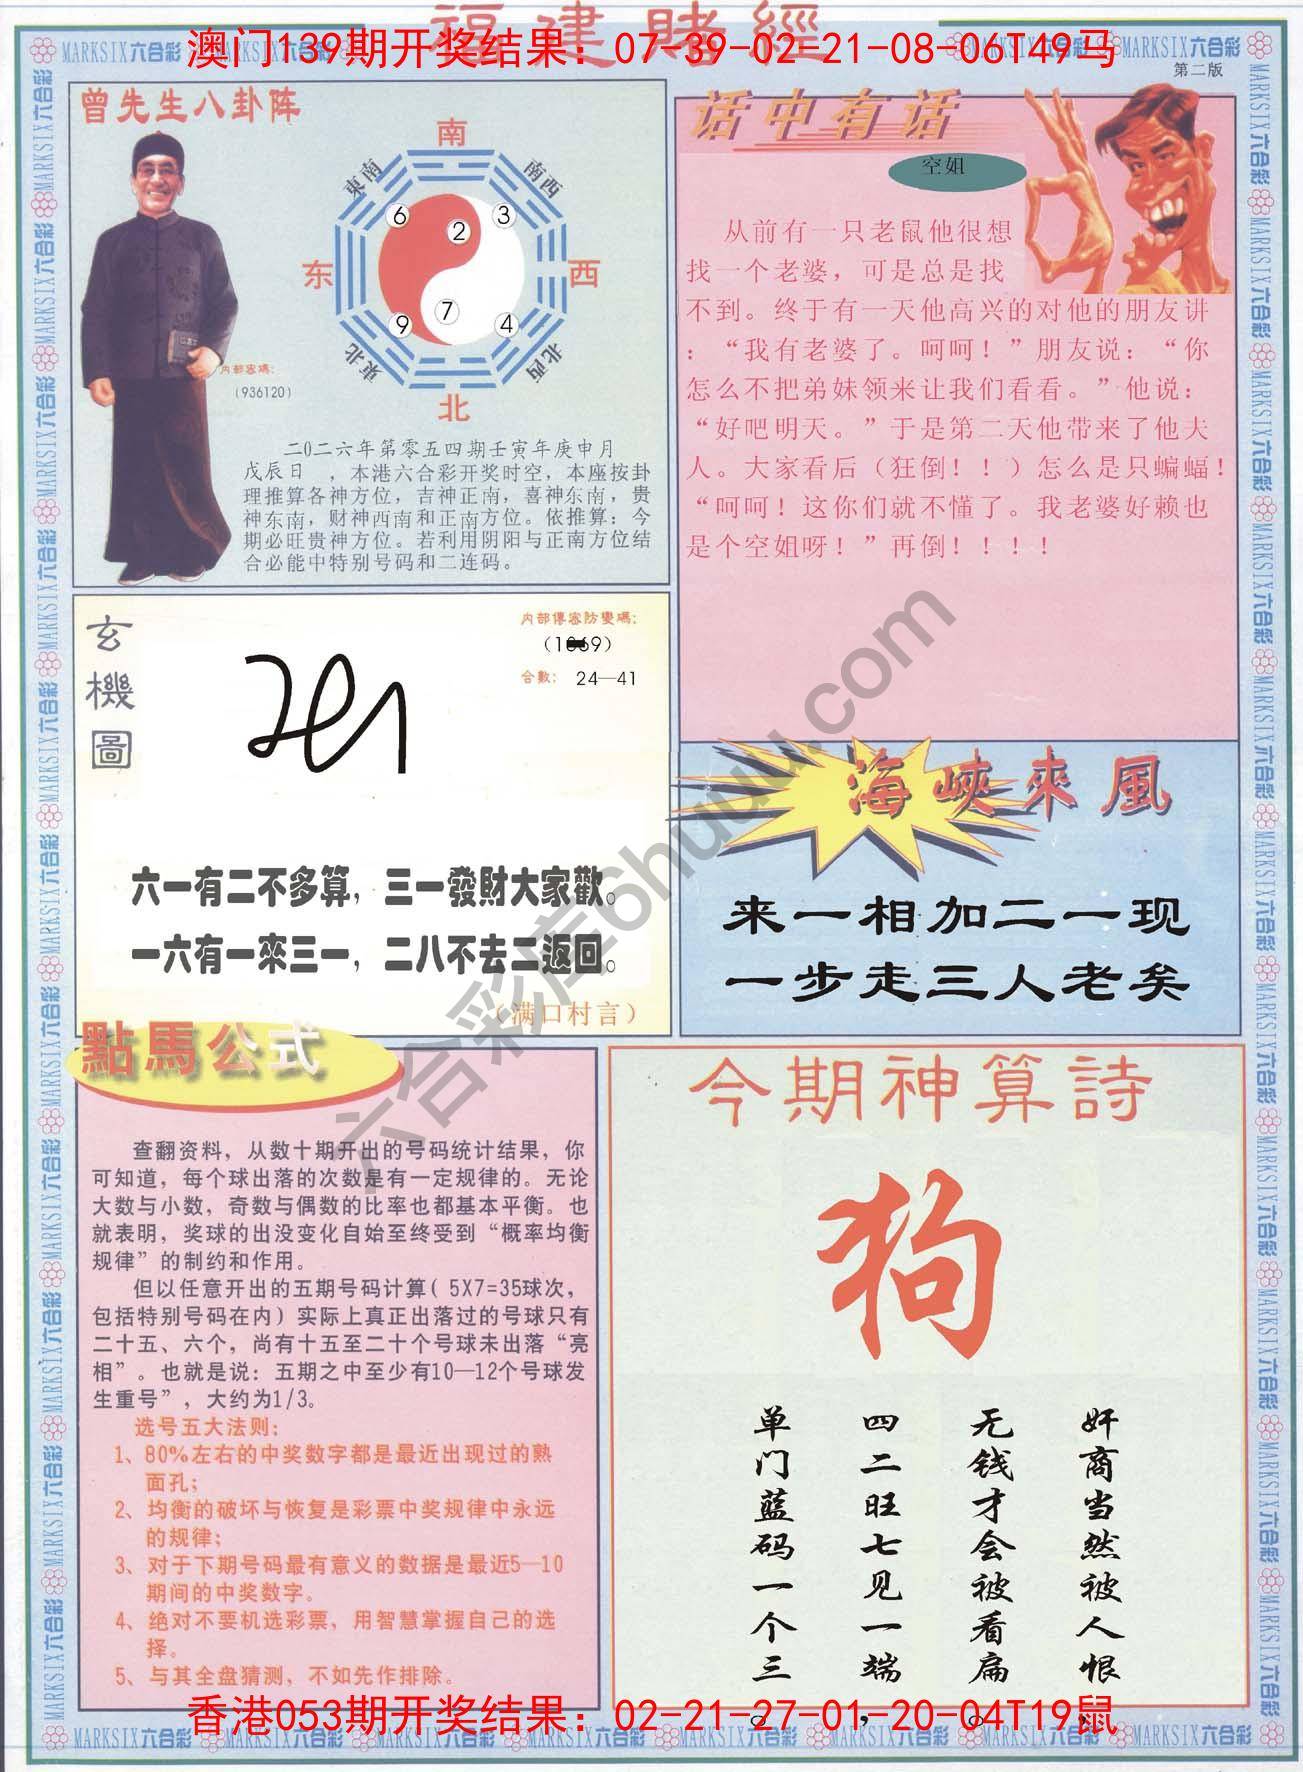 福建賭經
澳门139期开奖结果：07-39-02-21-08-06T49马
MARKSIX六合彩
第二版
曾先生八卦阵
南
東南
南西
6
2
3
东
西
9
7
4
東北
北西
北
内部密碼：
（936120）
二0二六年第零五四期壬寅年庚申月
戊辰日 ，本港六合彩开奖时空，本座按卦
理推算各神方位，吉神正南，喜神东南，贵
神东南，财神西南和正南方位。依推算：今
期必旺贵神方位。若利用阴阳与正南方位结
合必能中特别号码和二连码。
话中有话
空姐
从前有一只老鼠他很想
找一个老婆，可是总是找
不到。终于有一天他高兴的对他的朋友讲
：“我有老婆了。呵呵！”朋友说：“你
怎么不把弟妹领来让我们看看。”他说：
“好吧明天。”于是第二天他带来了他夫
人。大家看后（狂倒！！）怎么是只蝙蝠！
“呵呵！这你们就不懂了。我老婆好赖也
是个空姐呀！”再倒！！！！
玄機圖
内部傳密防變碼：
合數： 24—41
六一有二不多算，三一發財大家歡。
一六有一來三一，二八不去二返回。
（满口村言）
海峽來風
来一相加二一现
一步走三人老矣
六合彩库6huuu.com
點馬公式
查翻资料，从数十期开出的号码统计结果，你
可知道，每个球出落的次数是有一定规律的。无论
大数与小数，奇数与偶数的比率也都基本平衡。也
就表明，奖球的出没变化自始至终受到“概率均衡
规律”的制约和作用。
但以任意开出的五期号码计算（5X7=35球次，
包括特别号码在内）实际上真正出落过的号球只有
二十五、六个，尚有十五至二十个号球未出落“亮
相”。也就是说：五期之中至少有10—12个号球发
生重号”，大约为1/3。
选号五大法则：
1、80%左右的中奖数字都是最近出现过的熟
面孔；
2、均衡的破坏与恢复是彩票中奖规律中永远
的规律；
3、对于下期号码最有意义的数据是最近5—10
期间的中奖数字。
4、绝对不要机选彩票，用智慧掌握自己的选
择。
5、与其全盘猜测，不如先作排除。
今期神算詩
狗
奸商当然被人恨，
无钱才会被看扁。
四二旺七见一端，
单门蓝码一个三。
香港053期开奖结果：02-21-27-01-20-04T19鼠
MARKSIX六合彩